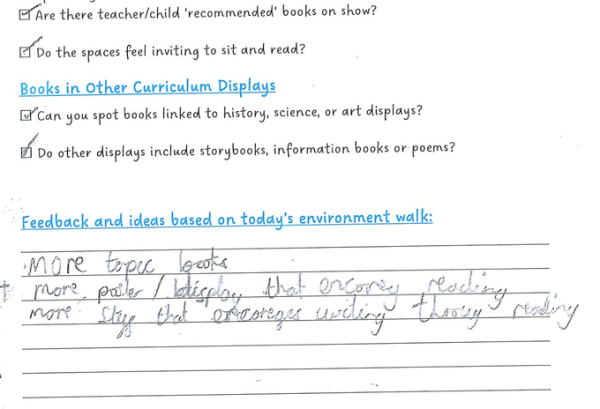 Are there teacher/child 'recommended' books on show?
Do the spaces feel inviting to sit and read?
Books in Other Curriculum Displays
Can you spot books linked to history, science, or art displays?
Do other displays include storybooks, information books or poems?
Feedback and ideas based on today's environment walk:
More topic books
more poster / display that encorey reading
more that encoreges writing throuy reading